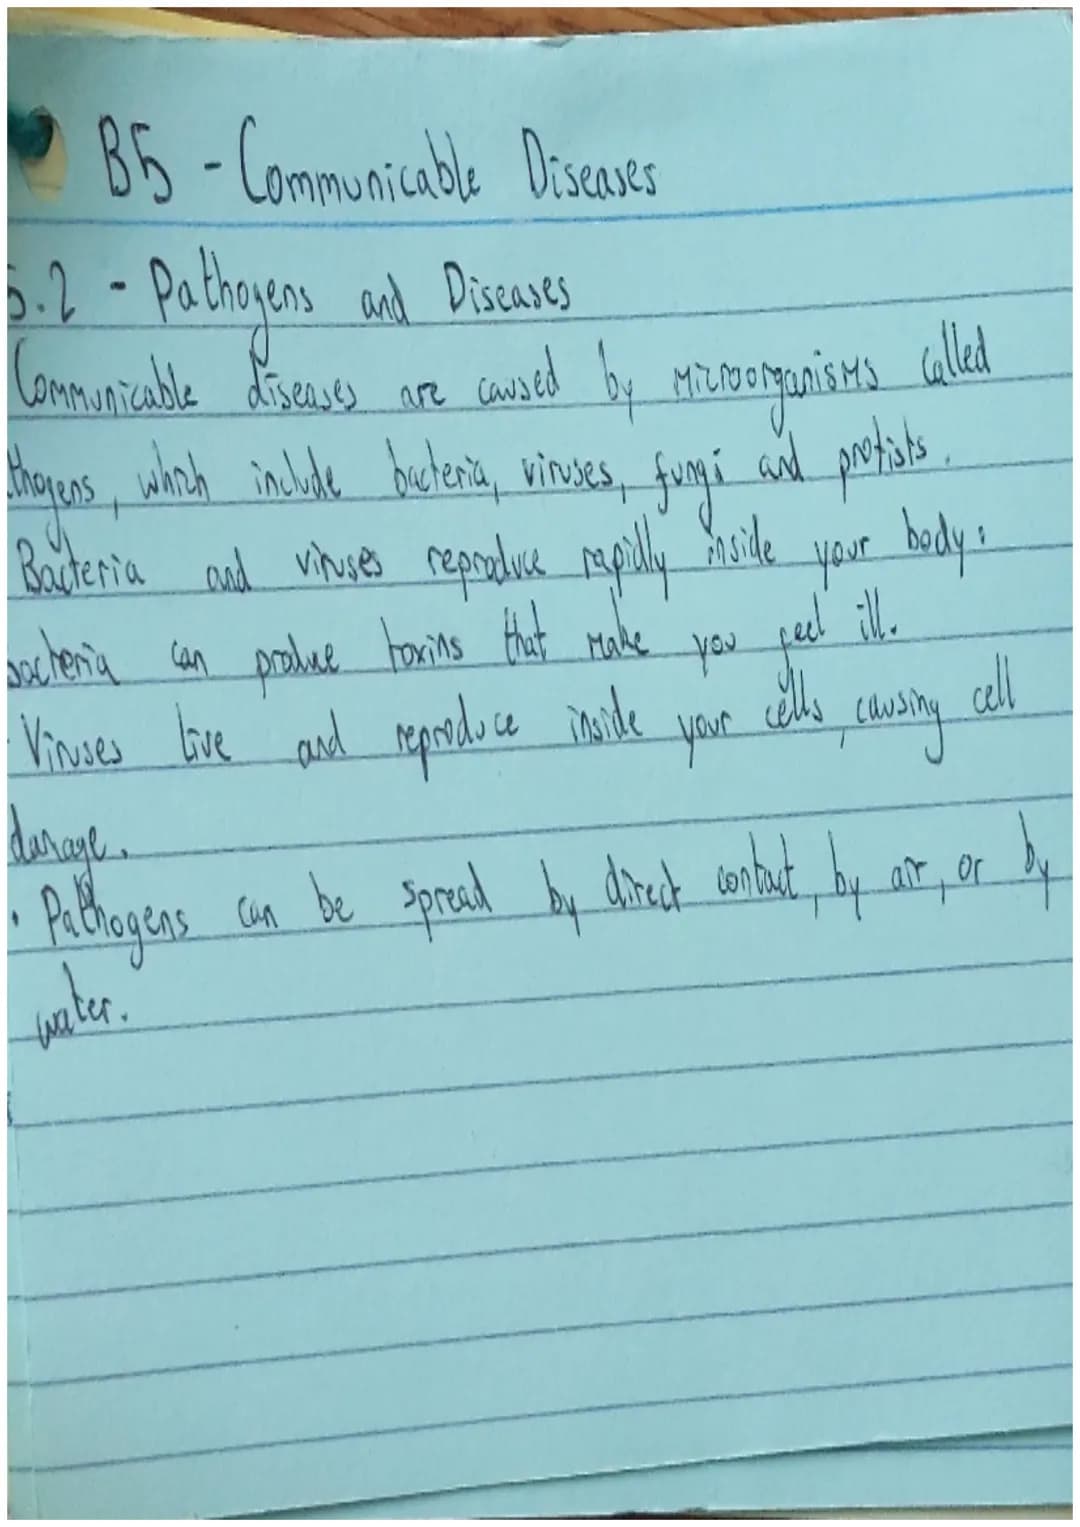 B5 - Communicable Diseases
5.2 - Pathogens and Diseases
Communicable diseases are caused by microorganisms called
thogens, which include bacteria, viruses, fungi and protists.
Bacteria and viruses reproduce rapidly inside your body:
bacteria can produce toxins that make you feel ill.
Viruses live and reproduce inside your cells, causing cell
damage.
• Pathogens can be spread by direct contact, by air, or by
water.